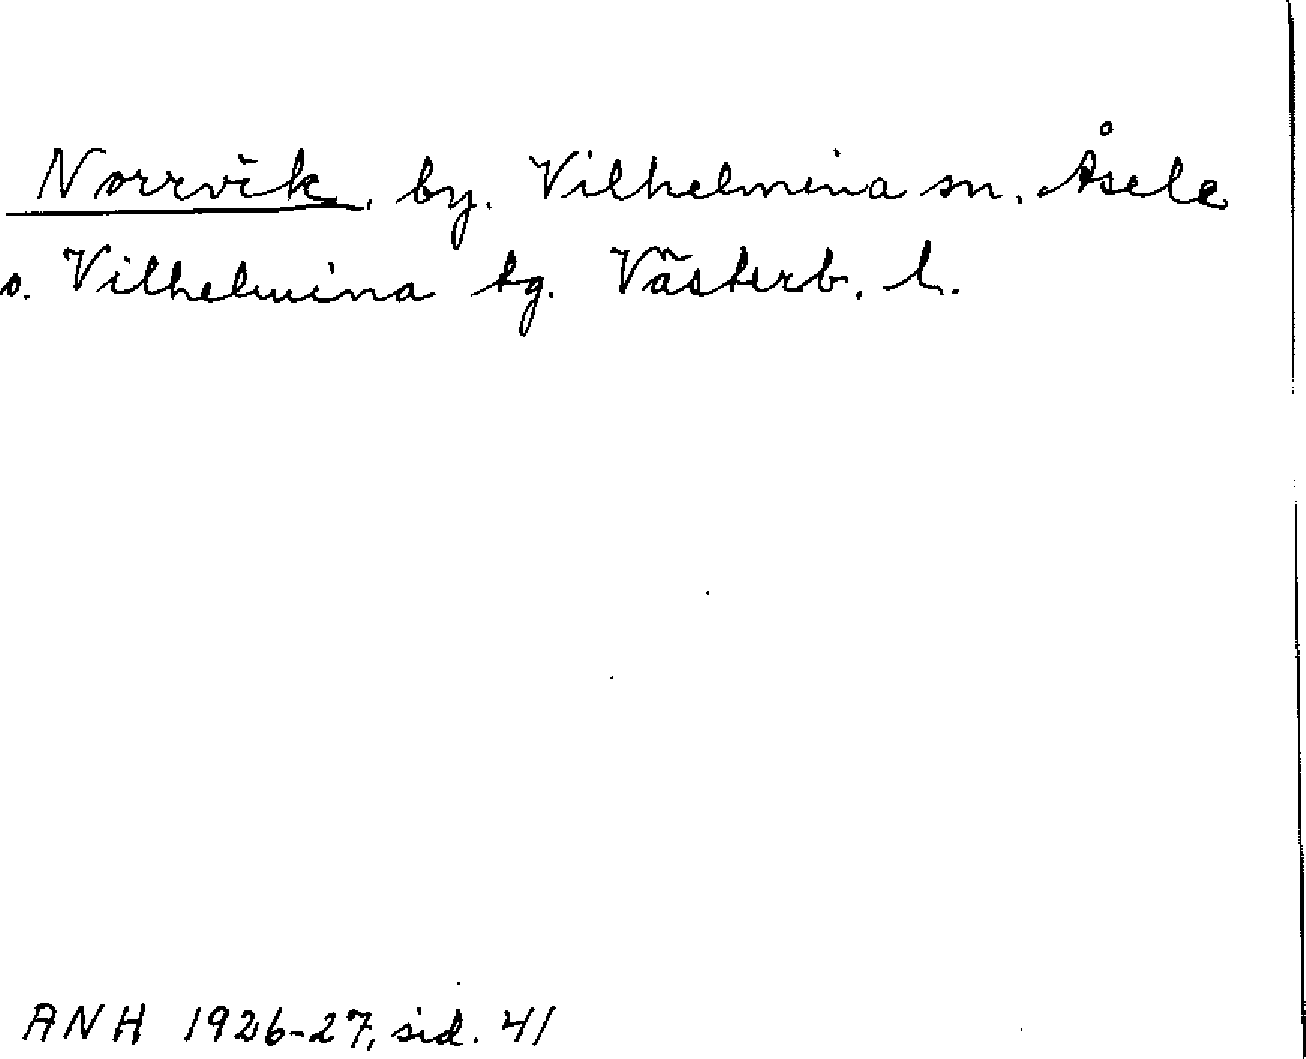 Norrvik, by. Vilhelmina sn. Åsele
o. Vilhelmina tg. Västerb. l.
ANH 1926-27, sid. 41